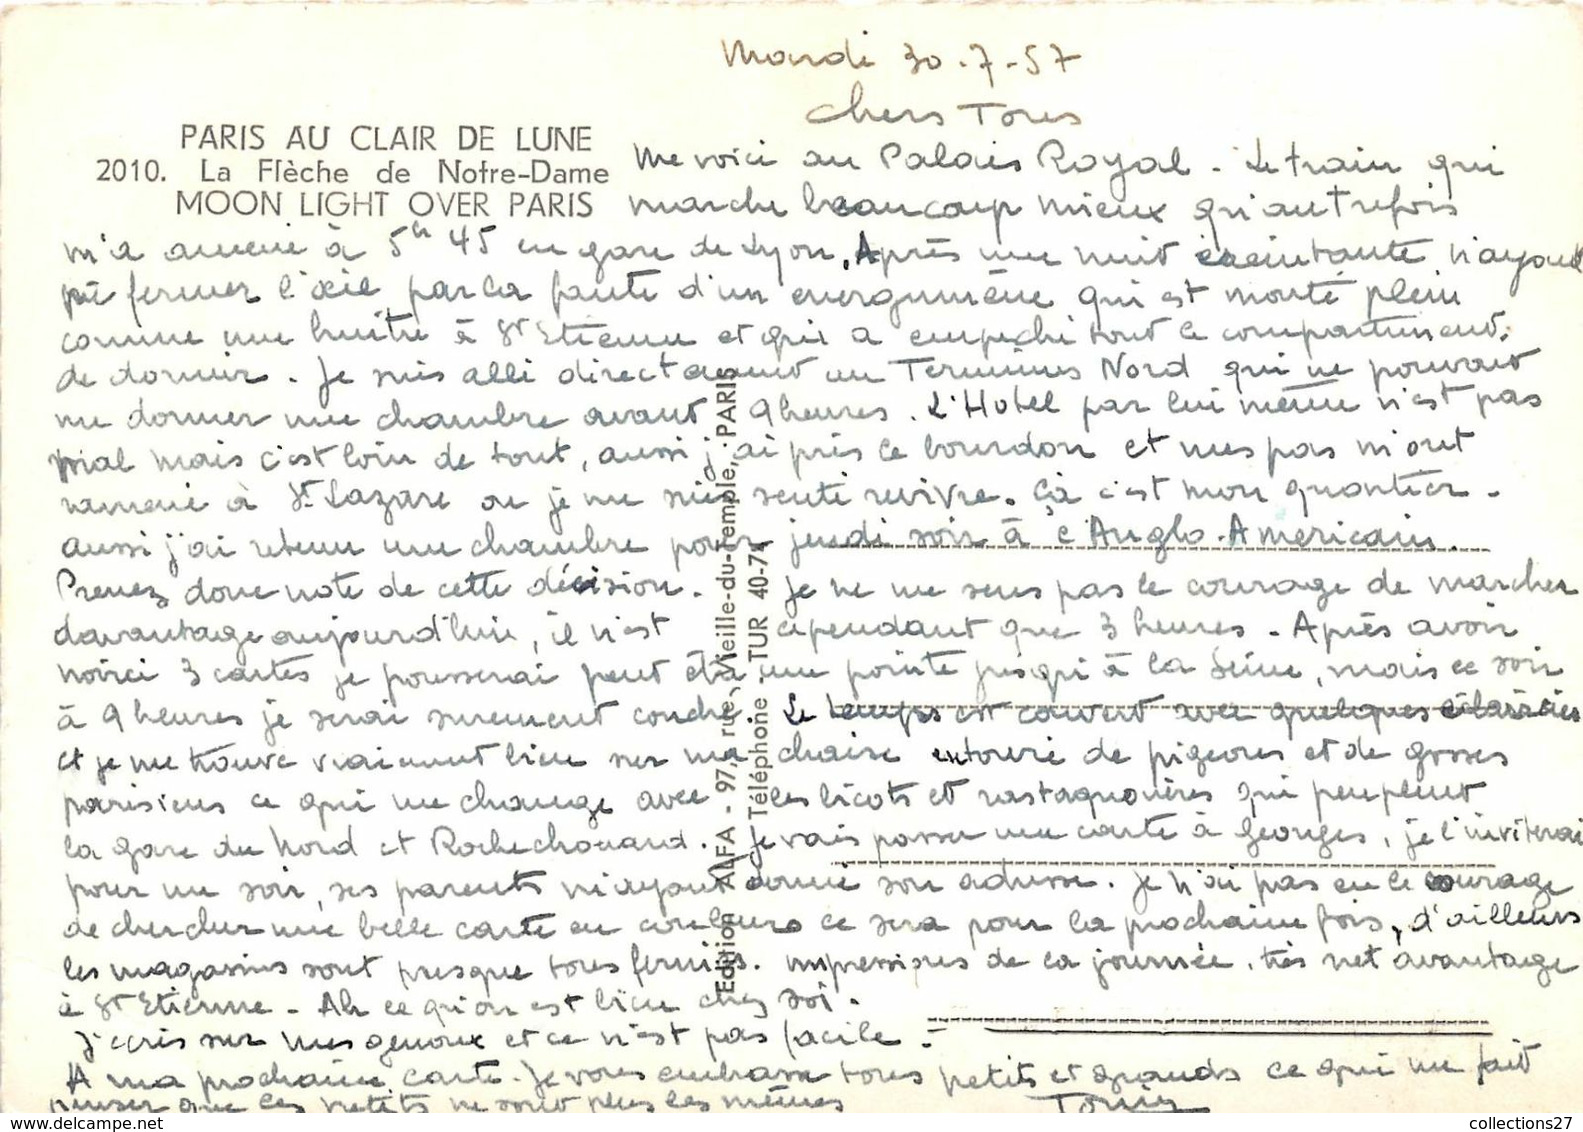 Mardi 30-7-57
Chers Tous
PARIS AU CLAIR DE LUNE
2010. La Flèche de Notre-Dame
MOON LIGHT OVER PARIS
me voici au Palais Royal - Le train qui
marche beaucoup mieux qu'autrefois
m'a amené à 5h 45 en gare de Lyon. Après une nuit éreintante n'ayant
pu fermer l'œil par la faute d'un énergumène qui est monté plein
comme une huître à St Etienne et qui a empêché tout le compartiment
de dormir. Je suis allé directement au Terminus Nord qui ne pouvait
me donner une chambre avant 9 heures. L'Hotel par lui même n'est pas
mal mais c'est loin de tout, aussi j'ai pris le bourdon et mes pas m'ont
ramené à St Lazare ou je me suis senti revivre. Çà c'est mon quartier -
aussi j'ai retenu une chambre pour jeudi soir à l'Anglo-Americain.
Prenez donc note de cette décision. Je ne me sens pas le courage de marcher
davantage aujourd'hui, il n'est cependant que 3 heures - Après avoir
noirci 3 cartes je pousserai peut être une pointe jusqu'à la Seine, mais ce soir
à 9 heures je serai surement couché. Le temps est couvert avec quelques éclaircies
et je me trouve vraiment bien sur ma chaise entouré de pigeons et de gosses
parisiens ce qui me change avec les bicots et rastaquouères qui peuplent
la gare du Nord et Rochechouard. Je vais passer une carte à Georges, je l'inviterai
pour un soir, ses parents m'ayant donné son adresse. Je n'ai pas eu le courage
de chercher une belle carte en couleurs ce sera pour la prochaine fois, d'ailleurs
les magasins sont presque tous fermés. Impressions de la journée, très net avantage
à St Etienne - Ah ce qu'on est bien chez soi.
J'écris sur mes genoux et ce n'est pas facile -
A ma prochaine carte. Je vous embrasse tous petits et grands ce qui me fait
penser que les petits ne sont plus les mêmes
Edition ALFA - 97, rue Vieille-du-Temple, PARIS
Téléphone : TUR 40-7
collections27